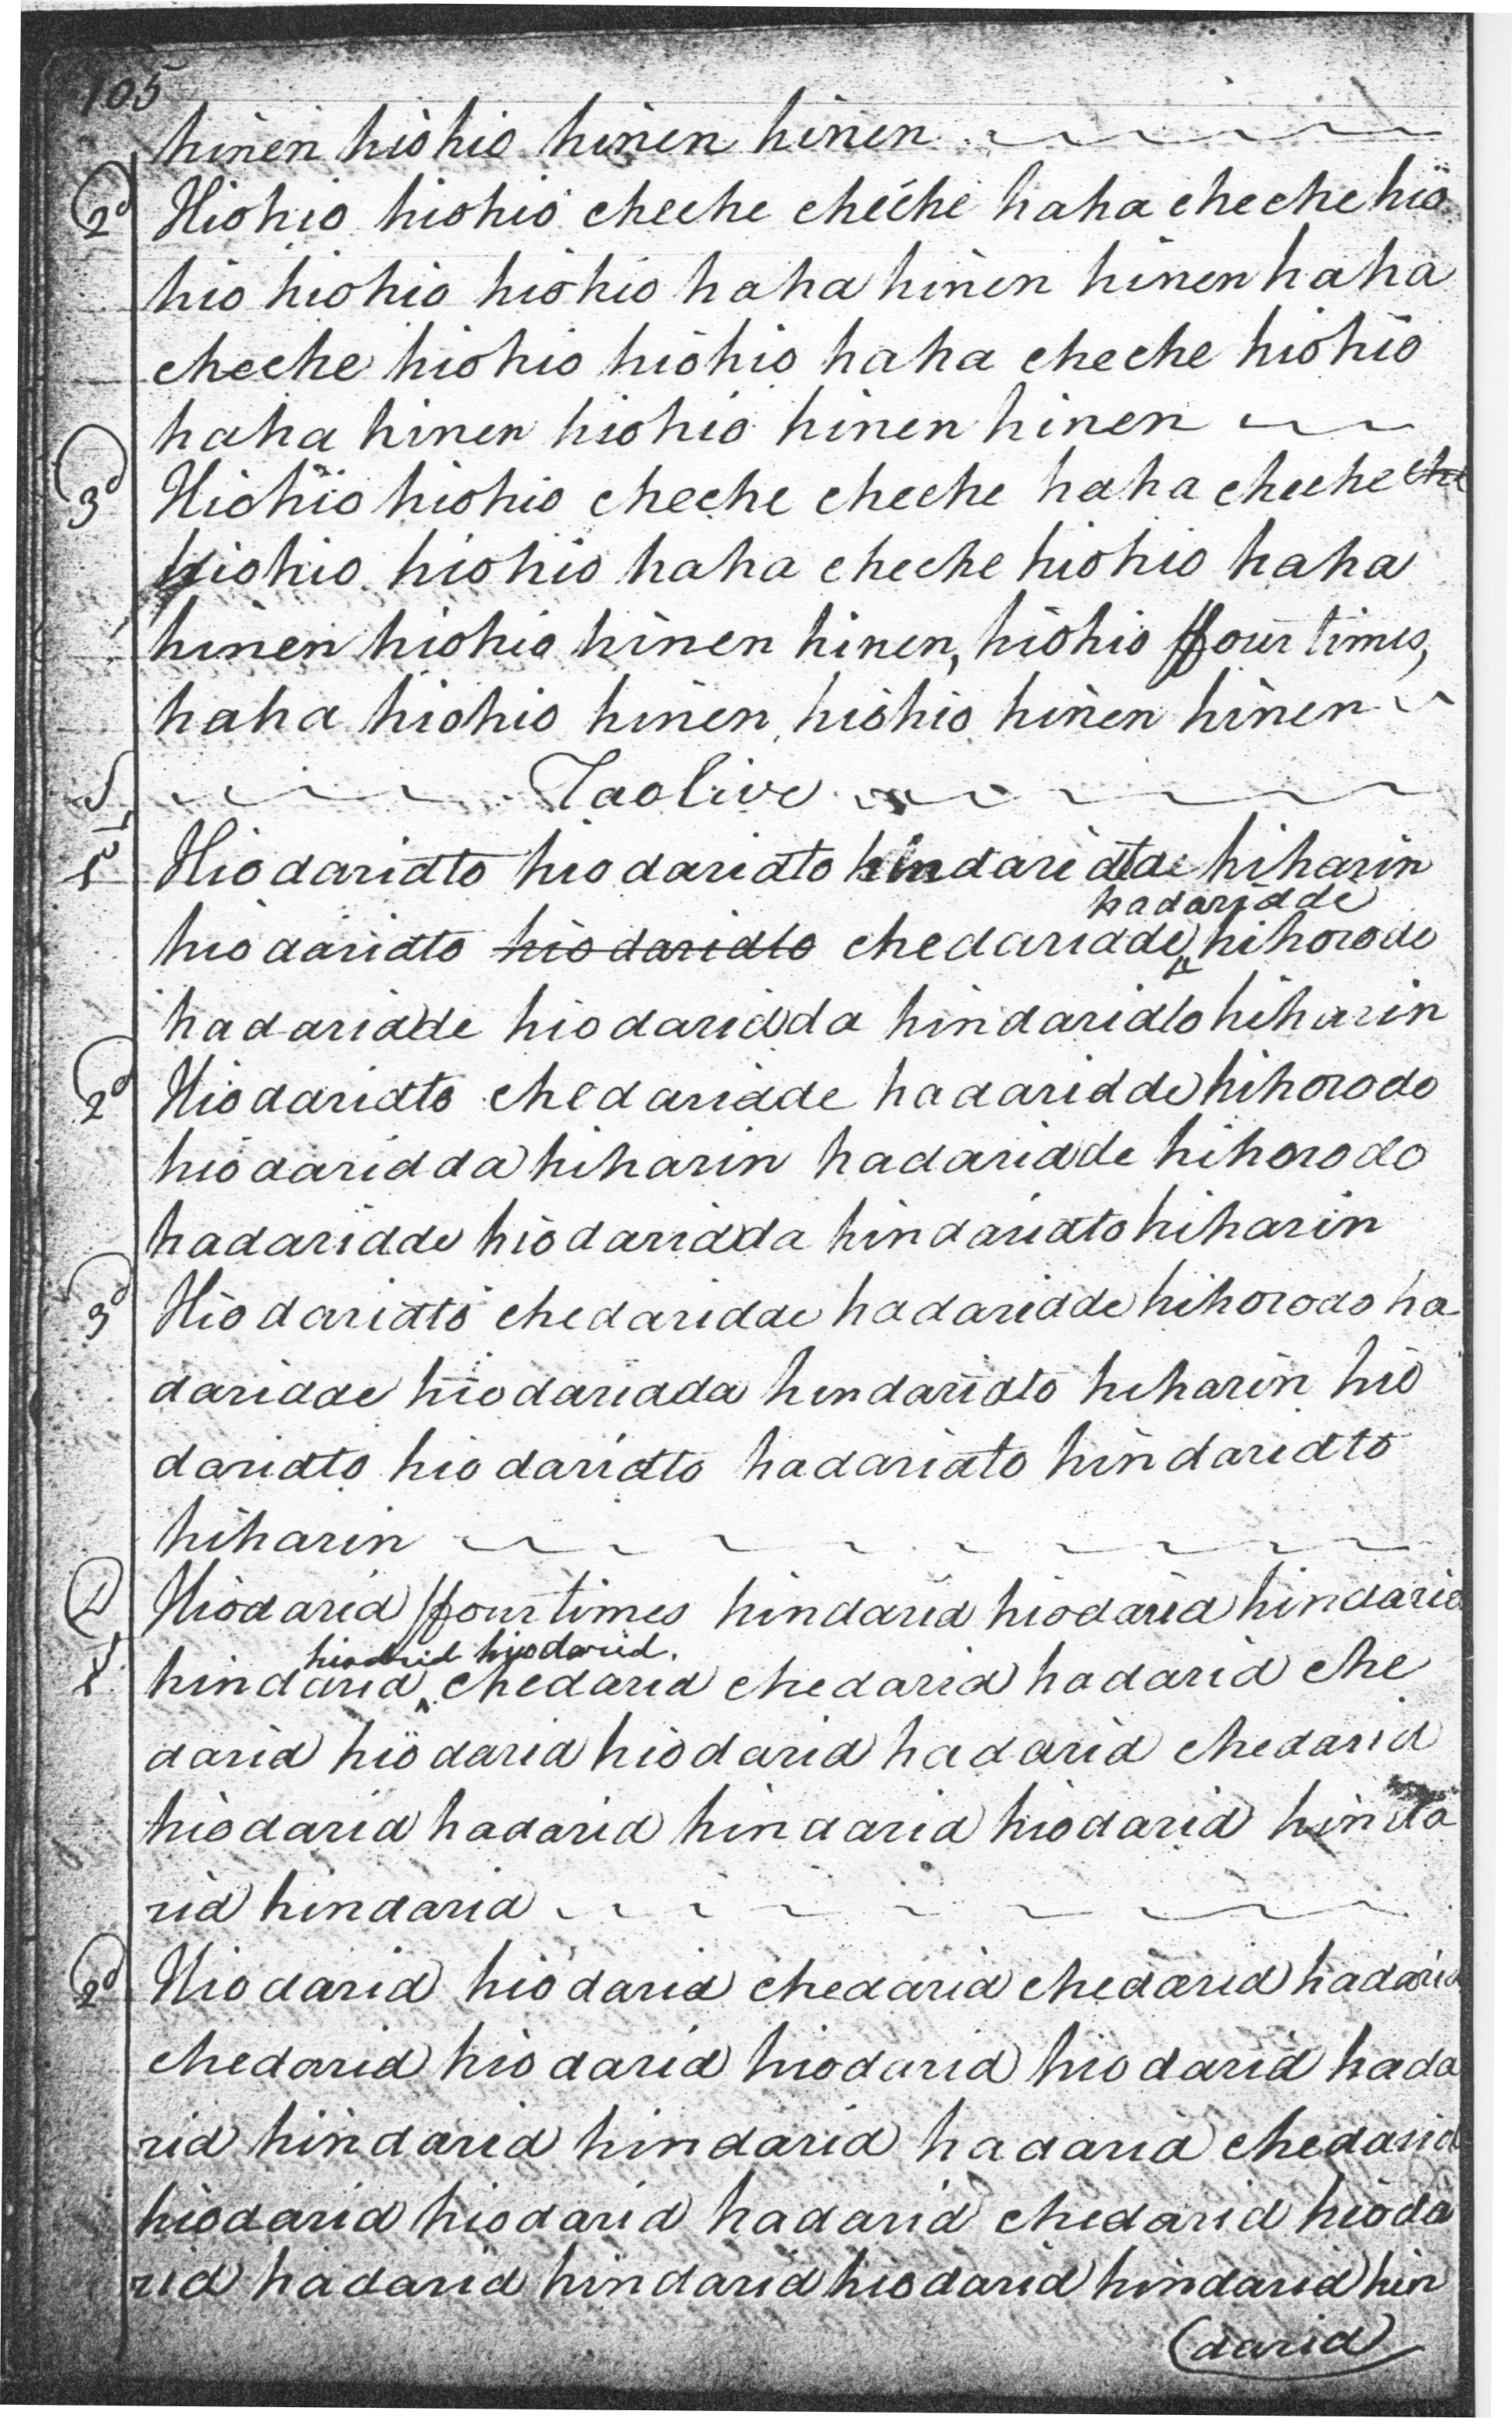 105
hinen hiohio hinen hinen
2d Hiohio hiohio cheche cheche haha cheche hio
hio hiohio hiohio haha hinen hinen haha
cheche hiohio hiohio haha cheche hiohio
haha hinen hiohio hinen hinen
3d Hiohio hiohio cheche cheche haha cheche che
hiohio hiohio haha cheche hiohio haha
hinen hiohio hinen hinen, hiohio ffour times,
haha hiohio hinen hiohio hinen hinen
Taolive
1 Hiodaridto hiodaridto hindaridde hiharin
hadaridde
hiodaridto hiodaridto chedaridde hihorodo
hadaridde hiodaridda hindaridto hiharin
2d Hiodaridto chedaridde hadaridde hihorodo
hiodaridda hiharin hadaridde hihorodo
hadaridde hiodaridda hindaridto hiharin
3d Hiodaridto chedaridde hadaridde hihorodo ha
daridde hiodaridda hindaridto hiharin hio
daridto hiodaridto hadaridto hindaridto
hiharin
Hiodarid ffour times hindarid hiodarid hindarid
hiodarid.
hindarid chedarid chedarid hadarid che
darid hiodarid hiodarid hadarid chedarid
hiodarid hadarid hindarid hiodarid hinda
rid hindarid
2d Hiodarid hiodarid chedarid chedarid hadarid
chedarid hiodarid hiodarid hiodarid hada
rid hindarid hindarid hadarid chedarid
hiodarid hiodarid hadarid chedarid hioda
rid hadarid hindarid hiodarid hindarid hin
darid